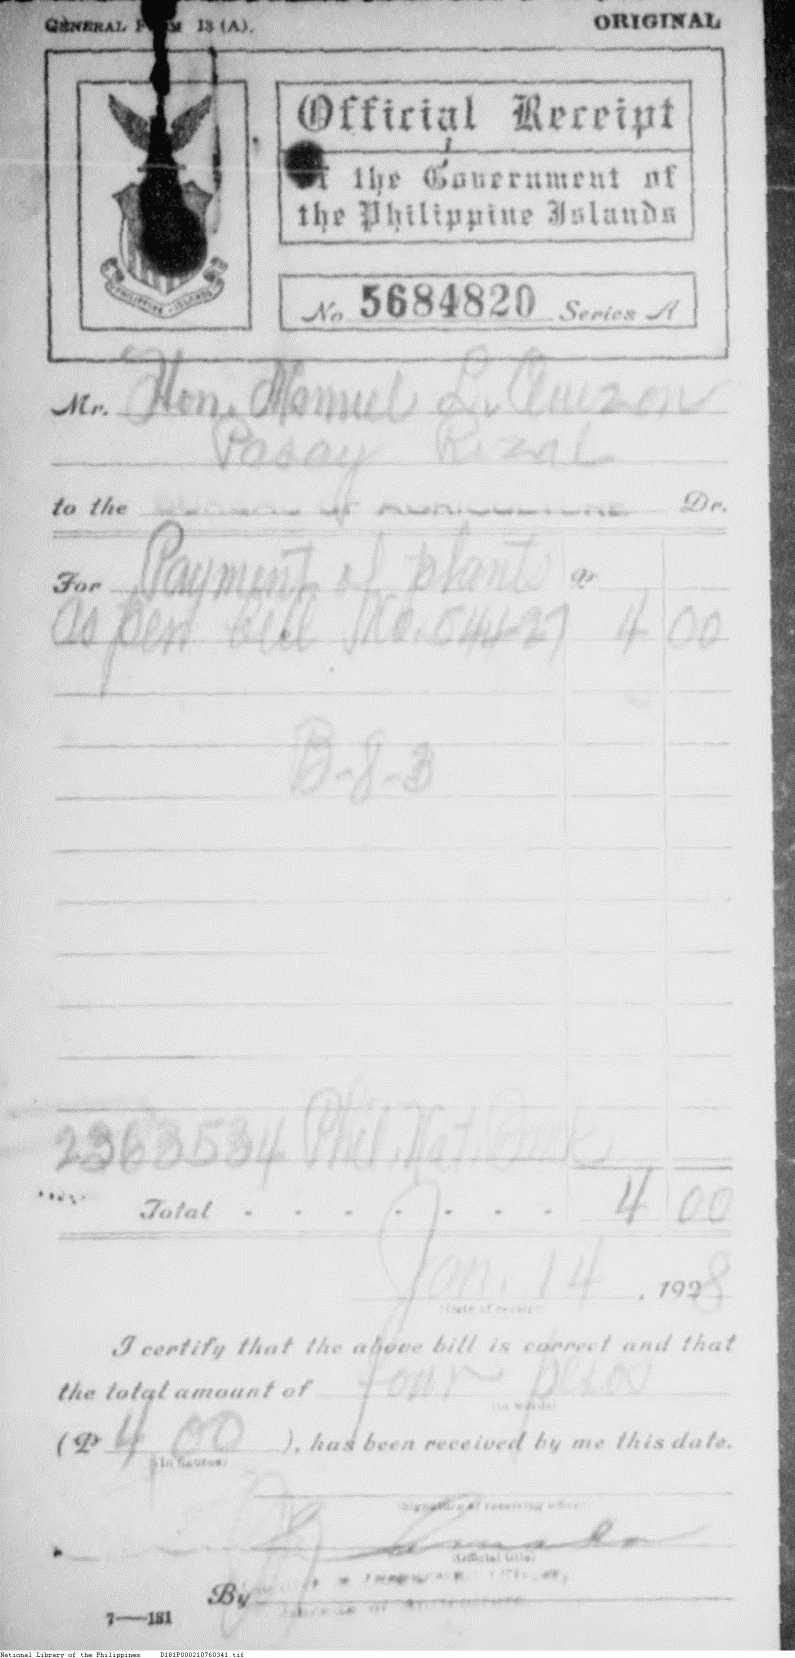 GENERAL FORM 13 (A).
ORIGINAL
Official Receipt
of the Government of
the Philippine Islands
PHILIPPINE ISLANDS
No. 5684820 Series A
Mr. Hon. Manuel L. Quezon
Pasay Rizal
to the BUREAU OF AGRICULTURE Dr.
For Payment of plants ₱
as per bill No. 544-27 4 00
B-8-3
2363534 Phil. Nat. Bank
Total - - - - - - - 4 00
Jan. 14, 1928
(Date of receipt)
I certify that the above bill is correct and that
the total amount of four pesos
(In words)
(₱ 4 00 ), has been received by me this date.
(In figures)
(Signature of receiving officer)
(Official title)
By
Bureau of Agriculture
7—181
National Library of the Philippines D181P000210760341.tif